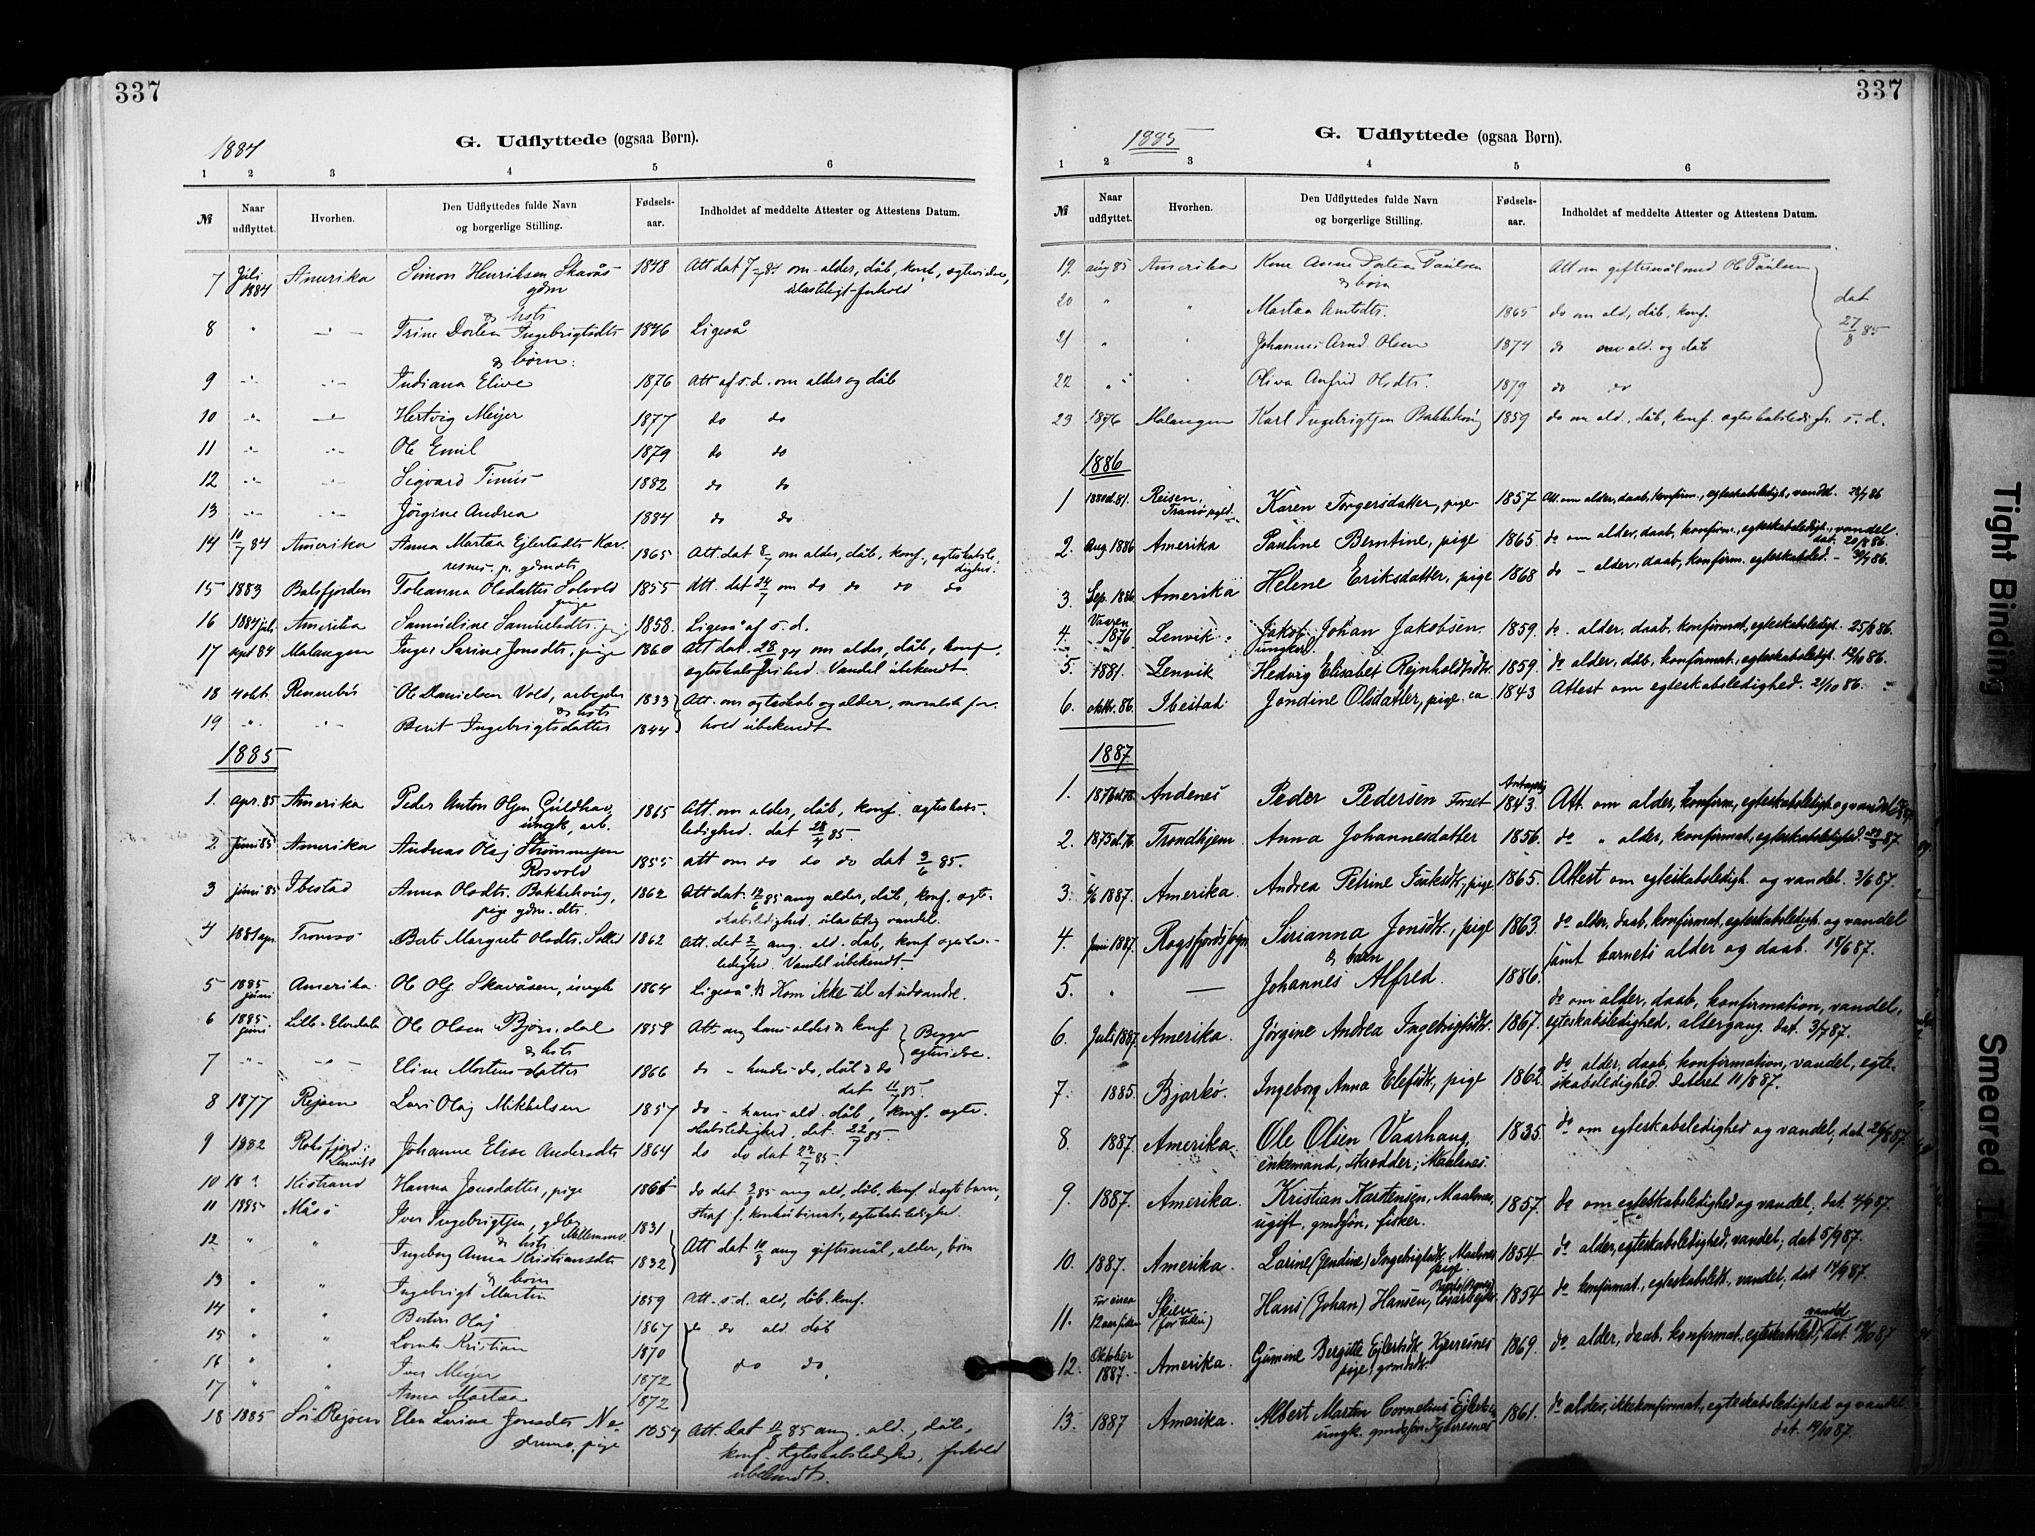 337
1884
G. Udflyttede (ogsaa Børn).
1 2 3 4 5 6
№ Naar udflyttet. Hvorhen. Den Udflyttedes fulde Navn og borgerlige Stilling. Fødsels-aar. Indholdet af meddelte Attester og Attestens Datum.
7 Juli 1884 Amerika Simon Henriksen Skavås 1848 Att dat 7/7 84 om alder, dåb, konf., egtevielse,
gdm ulasteligt forhold
& hstr
8 " — " — Trine Dortea Ingebrigtsdtr 1846 Ligeså
& børn:
9 Indiana Elive 1876 Att af s.d. om alder og dåb
10 Hertvig Meijer 1877 do do
11 Ole Emil 1879 do do
12 Sigvard Tinus 1882 do do
13 Jørgine Andrea 1884 do do
14 10/7 84 Amerika Anna Martaa Ejlertsdtr Kar- 1865 Att dat 8/7 om alder, dåb, konf, egteskabsle-
resnes. p. gdmdtr dighed.
15 1883 Balsfjorden Toleanna Olsdatter Solvold 1855 Att. dat 24/7 om do do do do
pige
16 1884 juli Amerika Samueline Samuelsdtr. pige 1858. Ligeså af s. d.
17 apr 84 Malangen Inger Sarine Jonsdtr, pige 1860 Att dat. 28/7 84 om alder, dåb, konf.
egteskabsfrihed Vandel ubekendt.
18 4 okt Rennebu Ole Danielsen Vold, arbejder 1833 Att. om egteskab og alder, moralsk for-
& hstr
19 " " Berit Ingebrigtsdatter 1844 hold ubekendt
1885
1. apr. 85 Amerika Peder Anton Olsen Guldhav, 1865 Att. om alder, dåb, konf. egteskabs-
ungk, arb. ledighed. dat 28/4 85.
2 Juni 85 Amerika Andreas Olaj Strømmesen
Rosvold 1855 att om do do do dat 3/6 85.
3 juni 85 Ibestad Anna Olsdtr. Bakkehaug, 1862 Att dat 12/6 85 ang alder, dåb, konf. egte-
pige gdm. dtr. skabsledighed. ulastelig vandel.
4 1881 apr. Tromsø Berit Margrete Olsdtr. 1862 Att. dat 2/7 ang. ald. dåb, konf egtesk.-
ledighed. Vandel ubekendt.
5 1885 juni Amerika Ole Olsen Skavåsen, ungk 1864 Ligeså. NB Kom ikke til at udvandre.
6 1885 juni. Lille-Elvedalen Ole Olsen Bjørsdal 1858 Att. ang hans alder & konf Begges
& hstr egtevielse.
7 " " — " — Eline Mortensdatter 1866 do – hendes do, dåb & do
dat 11/7 85.
8 1877 Rejsen Lars Olaj Mikkelsen 1857 do – hans ald. dåb, konf. egte-
skabsledighed. dat. 22/7 85.
9 1882 Rossfjord: Lenvik Johanne Elise Andersdtr 1864 do do dat 22/7 85.
10 18 ? Kistrand Hanna Jonsdatter, pige 1866 do dat 2/8 85 ang ald, dåb, konf. uægte barn,
11 1885 Måsø Iver Ingebrigtsen, gdbr 1831 straf f. konkubinat, egteskabsledighed.
& hstr
12 " " Ingeborg Anna Kristiansdtr 1832 Att dat 10/8 ang giftermål, alder, børn
& børn
13 " " Ingebrigt Martin 1859 Att. s.d. ald, dåb, konf.
14 " " Bertin Olaj 1867 do ald. dåb
15 " " Lorents Kristian 1870
16 " " Iver Meijer 1872 do do.
17 " " Anna Martaa 1872
18 1885 Sø-Rejsen Elen Larina Jonsdtr 1859 Att. dat 85 ang. ald., dåb,
pige konf. Egteskabsledighed, forhold
ubekendt.
337
1885
G. Udflyttede (ogsaa Børn).
1 2 3 4 5 6
№ Naar udflyttet. Hvorhen. Den Udflyttedes fulde Navn og borgerlige Stilling. Fødsels-aar. Indholdet af meddelte Attester og Attestens Datum.
19. aug 85 Amerika Kone Anne Dortea Paulsen Att om giftermål med Ole Paulsen
& børn
20 " " Martaa Arntsdtr. 1865 do om ald, dåb, konf. dat
21 " " Johannes Arnd. Olsen 1874 do om ald. og dåb 27/8 85
22 " " Oliva Anfrid Olsdtr. 1879 do do
23 1876 Malangen Karl Ingebrigtsen Bakkehaug 1859 do om ald., dåb, konf. egteskabsledigh. s. d.
1886
1 1880 d. 81. Reisen, Tranø pgd. Karen Torgersdatter, pige 1857 Att. om alder, daab, konfirm., egteskabsledigh, vandel. 28/7 86
2. Aug 1886 Amerika Pauline Berntine, pige 1865 do om alder, daab, konfirm., egteskabsledigh., vandel.
dat. 20/8 86.
3. Sep. 1886 Amerika Helene Eriksdatter, pige 1868 do – alder, daab, konfirm. egteskabsled. – 30/7 86.
4. Vaaren 1876 Lenvik. Jakob Johan Jakobsen 1859. do. alder, daab, konfirmat., egteskabsledigt. 25/8 86.
Ungkarl
5. 1881. Lenvik Hedvig Elisabet Rejnholdtsdtr. 1859. do alder, dåb, konfirmat., egteskabsledigt. 12/10 86.
6. oktbr. 86. Ibestad. Jondine Olsdatter, pige. ca 1843 Attest om egteskabsledighed. 21/10 86.
1887
1. Andenes Peder Pedersen Foset Antagelig 1843. Att. om alder, konfirm, egteskabsledigh. og vandel
2. 1875 d. 76. Trondhjem Anna Johannesdatter 1856. do " alder, konfirmat, egteskabsledighed. 87.
3. 1887. Amerika. Andrea Petrine Isaksdtr., pige 1865. Attest om egteskabsledigh. og vandel. 3/6 87.
4. Juni 1887. Rogsfjords sogn Sirianna Jonsdtr., pige 1863. do alder, daab, konfirmat, egteskabsledigh. og vandel
& barn samt barnets alder og daab. 18/6 87.
5. " — Johannes Alfred. 1886.
6. Juli 1887. Amerika. Jørgine Andrea Ingebrigtsdtr. 1867. do om alder, daab, konfirmation, vandel,
egteskabsledighed, altergang. dat. 3/7 87.
7. 1885. Bjarkø. Ingeborg Anna Elefsdtr., pige 1862. do alder, daab, konfirmation, vandel, egte-
skabsledighed. Dateret 11/8 87.
8. 1887. Amerika. Ole Olsen Vaarhaug, 1835. do om egteskabsledighed og vandel, dat. 26/8 87
enkemand, skrædder, Maalsnes.
9. 1887. Amerika. Kristian Karstensen, Maalsnes, 1857. do om egteskabsledighed og vandel, dat. 4/9 87.
ugift, gmdsøn, fisker.
10. 1887. Amerika. Larine (Jendine) Ingebrigtsdtr. Maalsnes 1854 do alder, egteskabsledighed, vandel; dat 5/9 87.
pige.
11. For circa 12 aar siden Skien (for tiden) Hans (Johan) Hansen, 1854 do konfirmat., egteskabsledh., vandel, dat 14/9 87.
12. Oktober 1887. Amerika. Gumine Bergitte Ejlertsdtr. Kjerresnes 1869. do alder, daab, konfirmat., egteskabsled., vandel, dat. 12/10 87
pige, gmdsdtr.
13. 1887 Amerika. Albert Martin Cornelius Ejlertsen 1861. do alder, ikke konfirmat., egteskabsledighed og vandel
ungk. gmdsøn, Kjerresnes dat. 19/10 87.
Tight Binding
Smeared I.